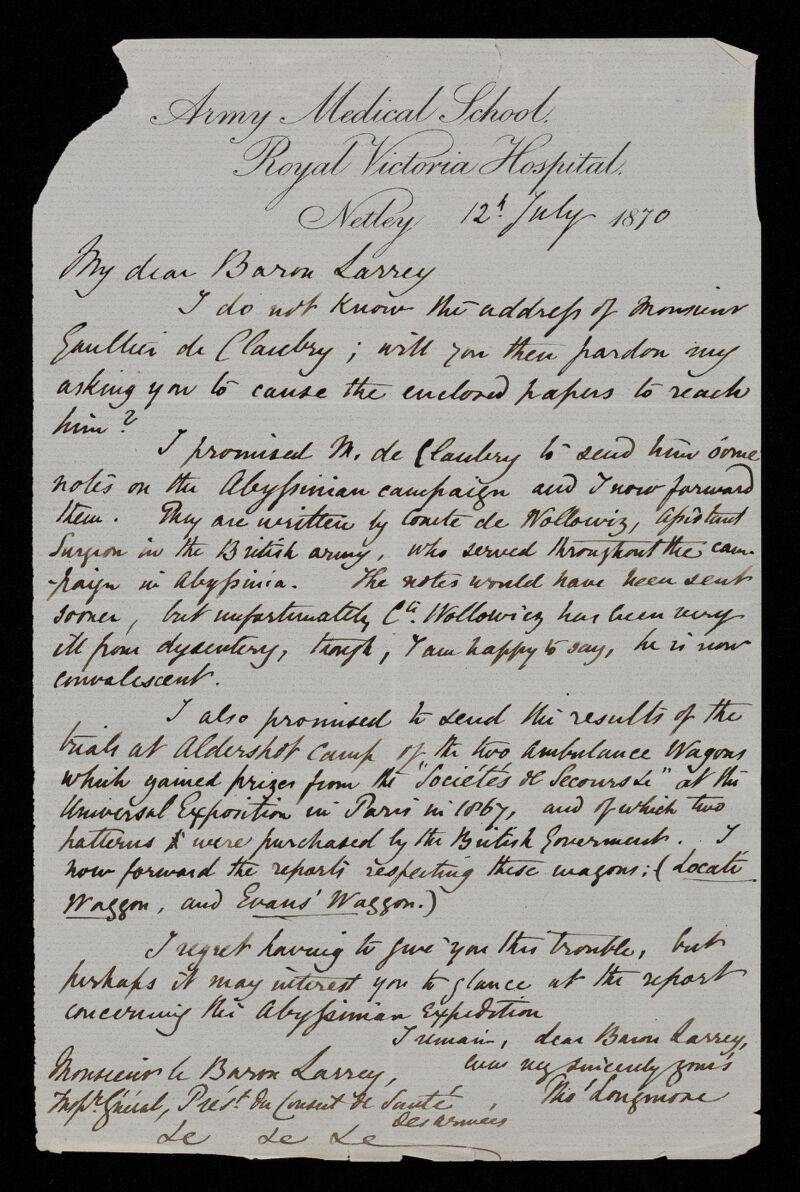 Army Medical School.
Royal Victoria Hospital.
Netley 12th July 1870
My dear Baron Larrey
I do not know the address of Monsieur
Gaultier de Claubry; will you then pardon my
asking you to cause the enclosed papers to reach
him?
I promised M. de Claubry to send him some
notes on the Abyssinian campaign and I now forward
them. They are written by Comte de Wollowicz, Assistant
Surgeon in the British army, who served throughout the cam-
-paign in Abyssinia. The notes would have been sent
sooner, but unfortunately Cte. Wollowicz has been very
ill from dysentery, though, I am happy to say, he is now
convalescent.
I also promised to send the results of the
trials at Aldershot Camp of the two Ambulance Wagons
which gained prizes from the "Societés de Secours &c" at the
Universal Exposition in Paris in 1867, and of which two
patterns were purchased by the British Goverment. I
now forward the reports respecting these wagons: (Locati
Waggon, and Evans' Waggon.)
I regret having to give you this trouble, but
perhaps it may interest you to glance at the report
concerning the Abyssinian Expedition
I remain, dear Baron Larrey,
ever very sincerely yours
Thos Longmore
Monsieur le Baron Larrey,
Inspr. Général, Prést. du Conseil de Santé
des armées
&c &c &c